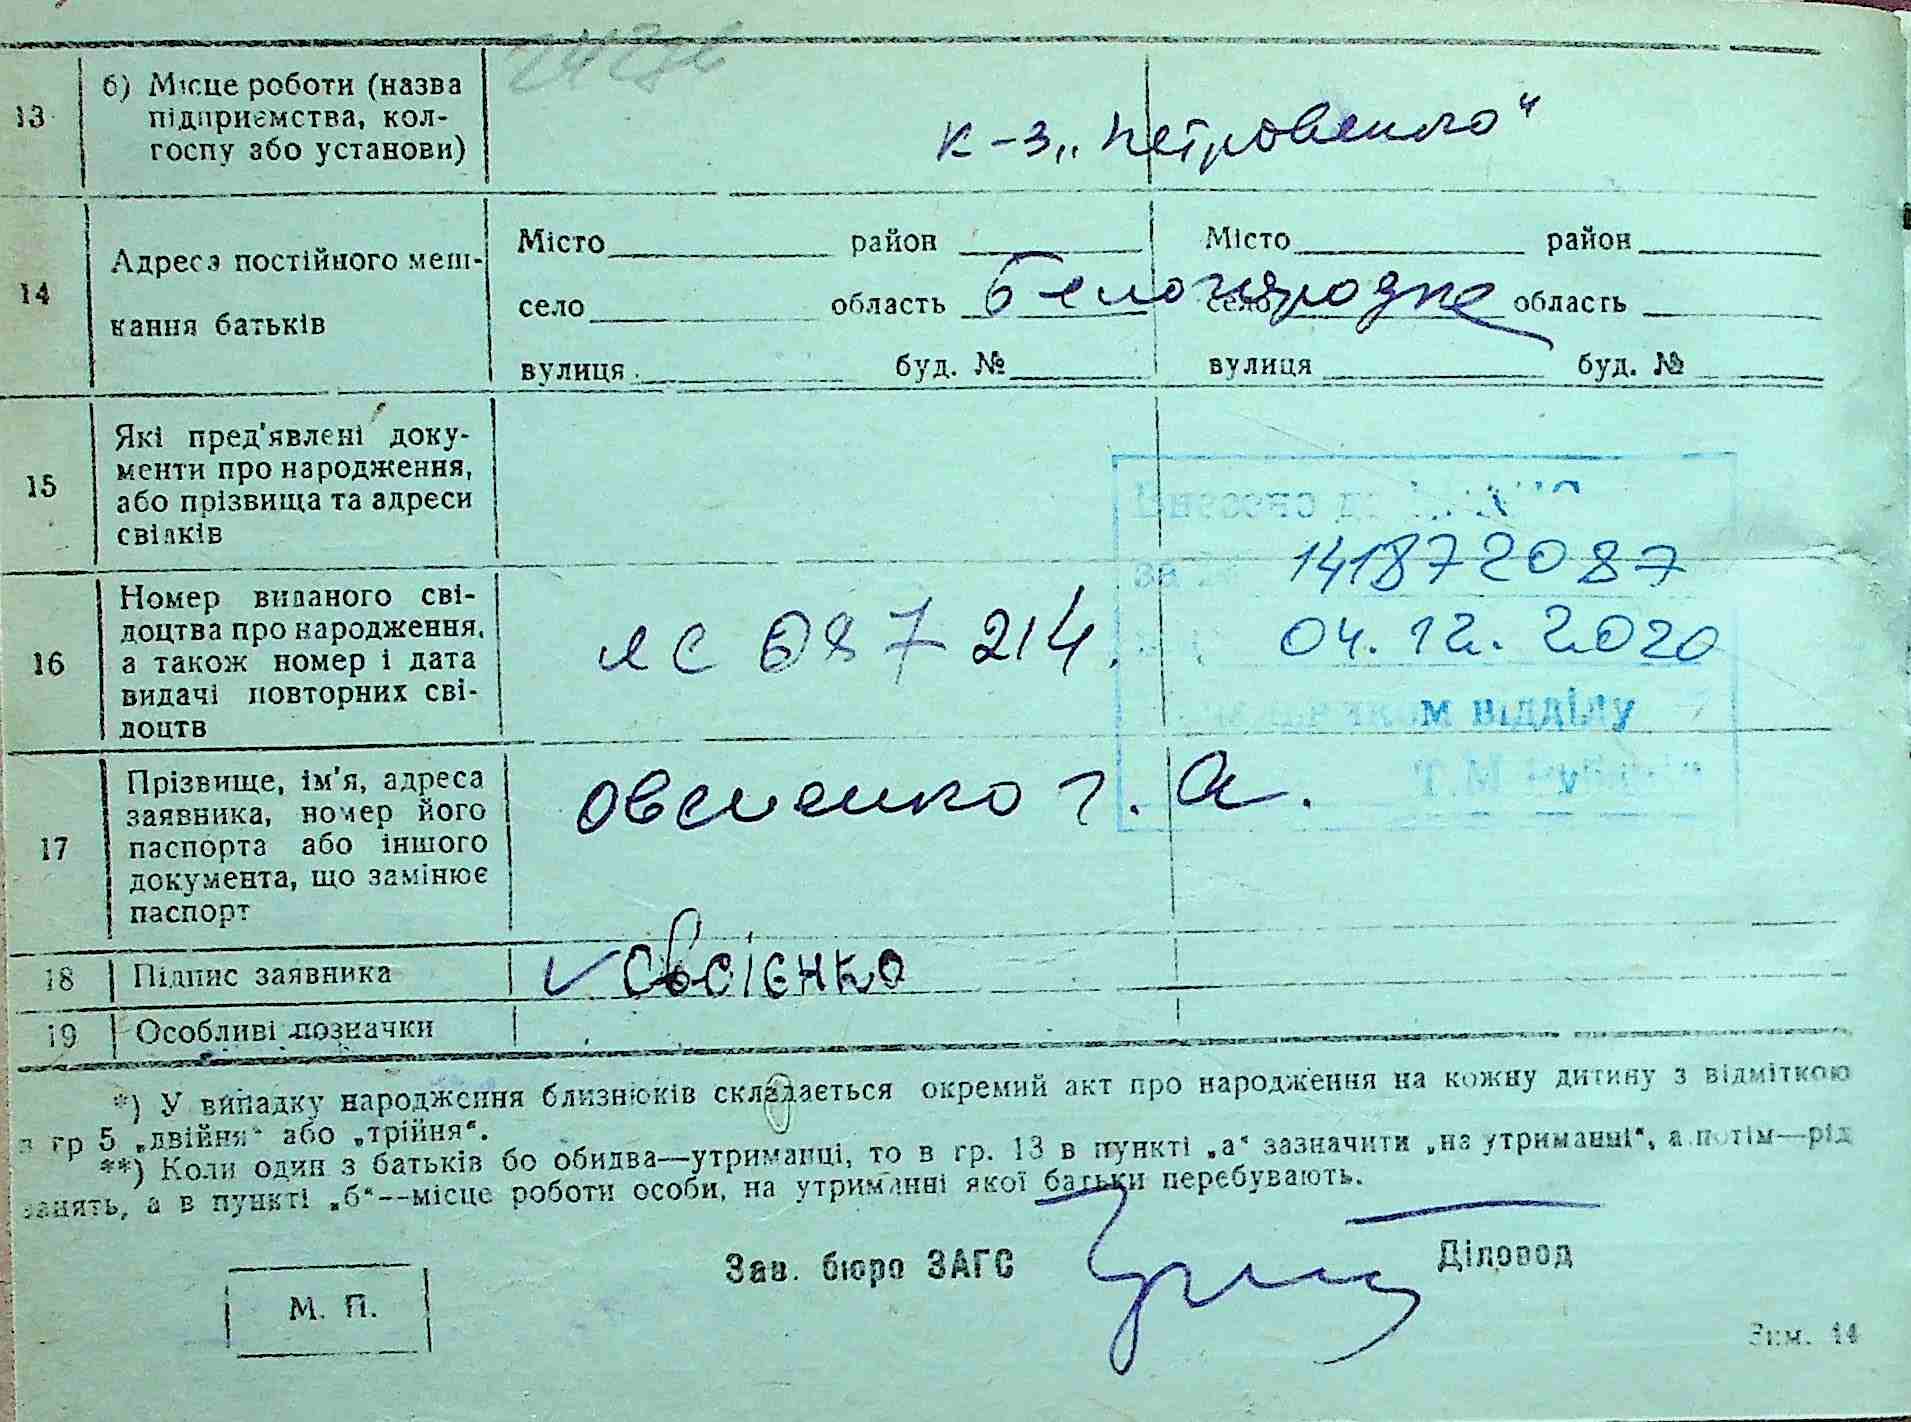 13
б) Місце роботи (назва
підприємства, кол-
госпу або установи)
к-з „Петровського“
14
Адреса постійного меш-
кання батьків
Місто район Місто район
село область село область
Белогородка
вулиця буд. № вулиця буд. №
15
Які пред'явлені доку-
менти про народження,
або прізвища та адреси
свідків
16
Номер виданого сві-
доцтва про народження,
а також номер і дата
видачі повторних сві-
доцтв
ЯС 087214.
за №
141872087
04.12.2020
відділу
Т.М.
17
Прізвище, ім'я, адреса
заявника, номер його
паспорта або іншого
документа, що замінює
паспорт
Овсиенко Г. А.
18
Підпис заявника
Овсієнко
19
Особливі позначки
*) У випадку народження близнюків складається окремий акт про народження на кожну дитину з відміткою
в гр 5 „двійня“ або „трійня“.
**) Коли один з батьків бо обидва—утриманці, то в гр. 13 в пункті „а“ зазначити „на утриманні“, а потім—рід
занять, а в пункті „б“--місце роботи особи, на утриманні якої батьки перебувають.
Зав. бюро ЗАГС
Діловод
М. П.
Зам. 14